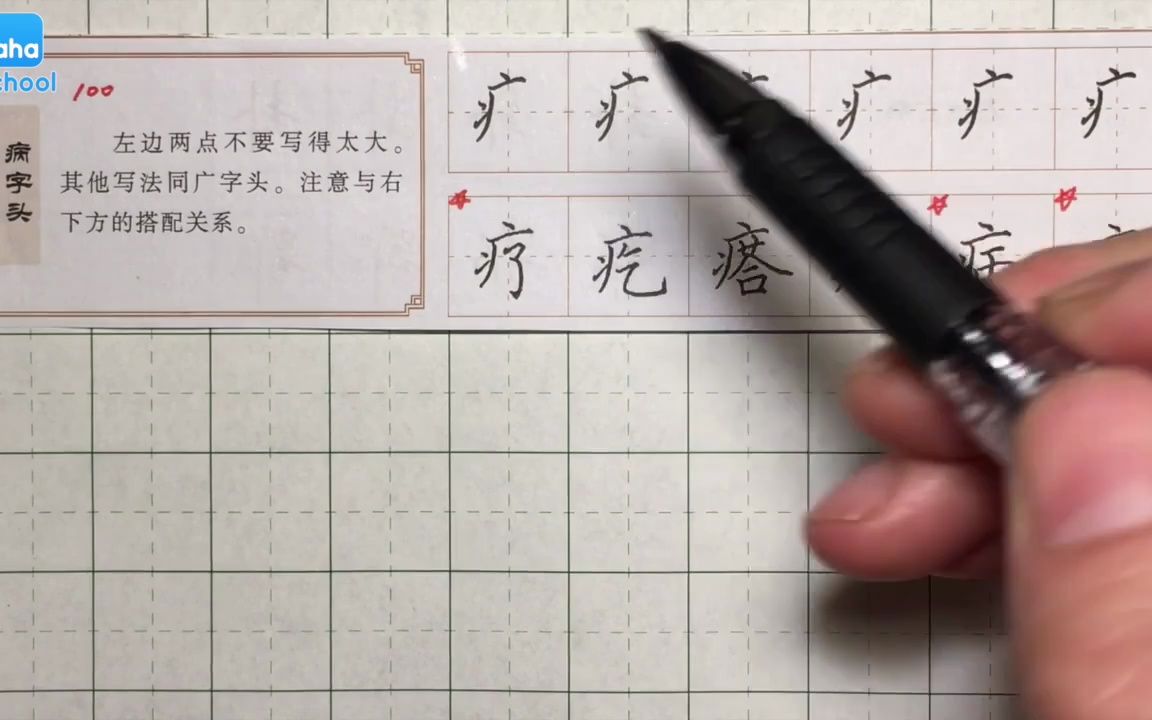 aha
school
100
病字头
左边两点不要写得太大。
其他写法同广字头。注意与右
下方的搭配关系。
疒 疒 疒 疒 疒
疗 疙 瘩 症